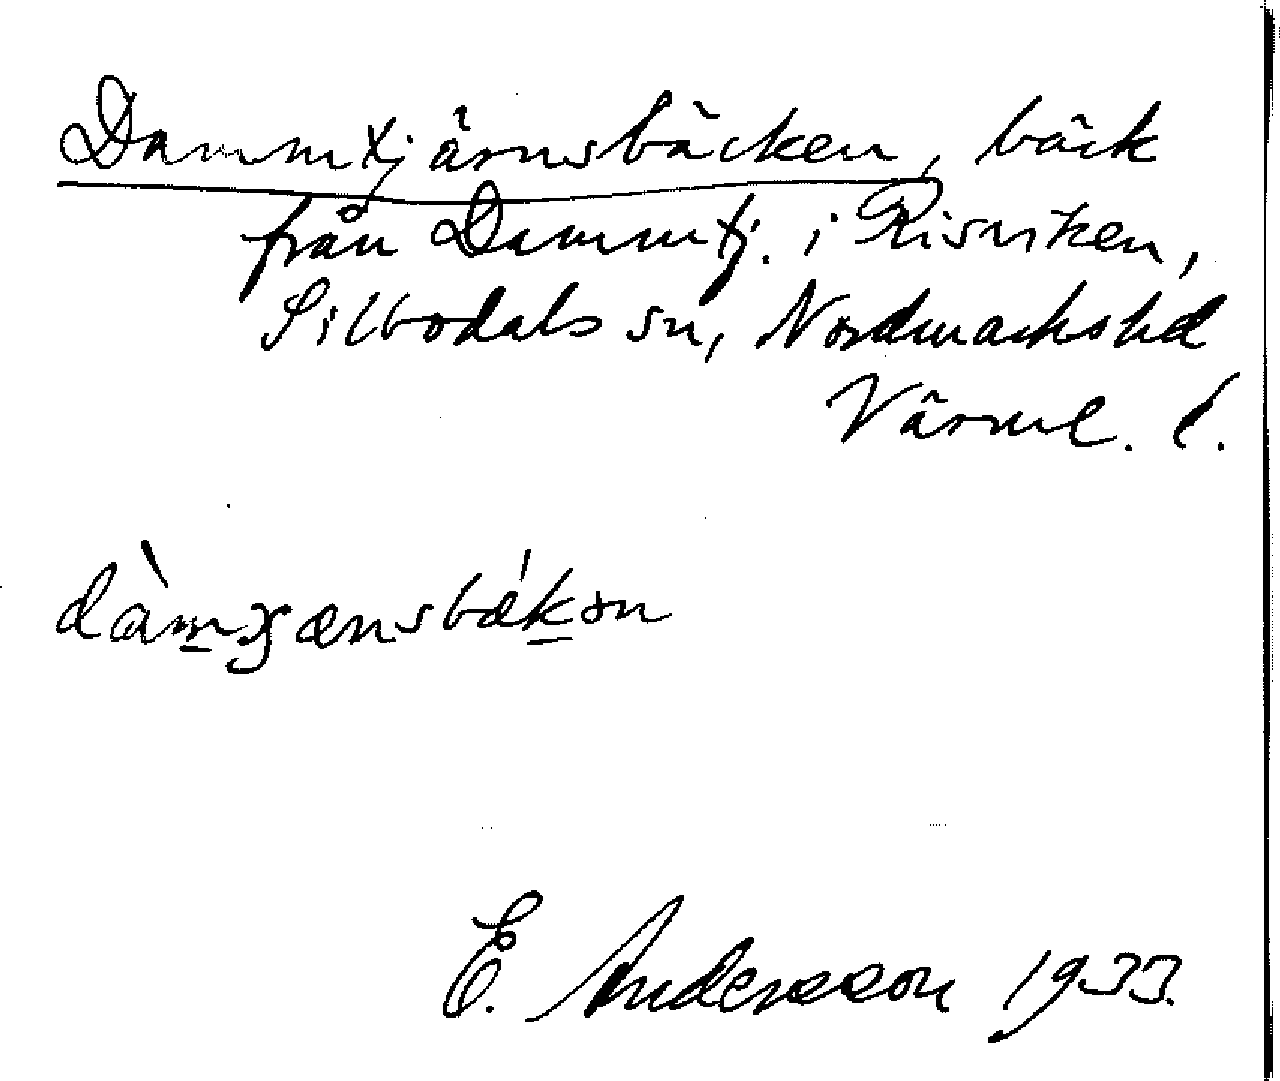 Dammtjärnsbäcken, bäck
från Dammtj. i Risviken,
Silbodals sn, Nordmarkshd
Värml. l.
E. Andersson 1933.